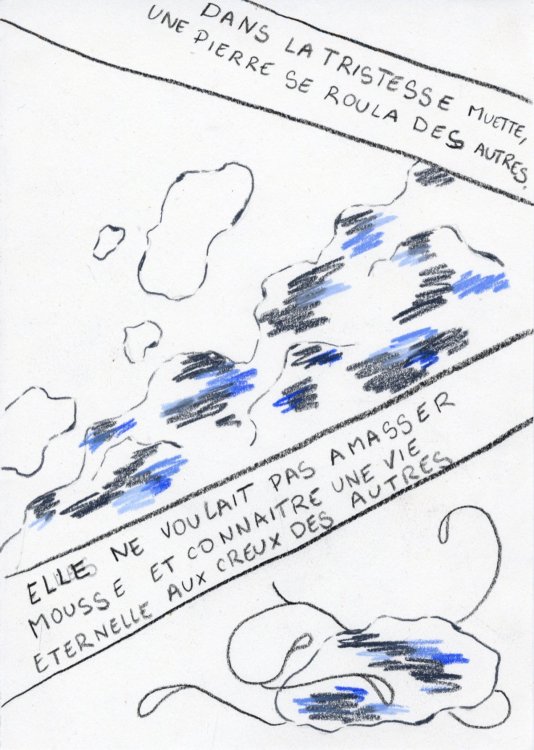 DANS LA TRISTESSE MUETTE,
UNE PIERRE SE ROULA DES AUTRES.
ELLE NE VOULAIT PAS AMASSER
MOUSSE ET CONNAITRE UNE VIE
ETERNELLE AUX CREUX DES AUTRES